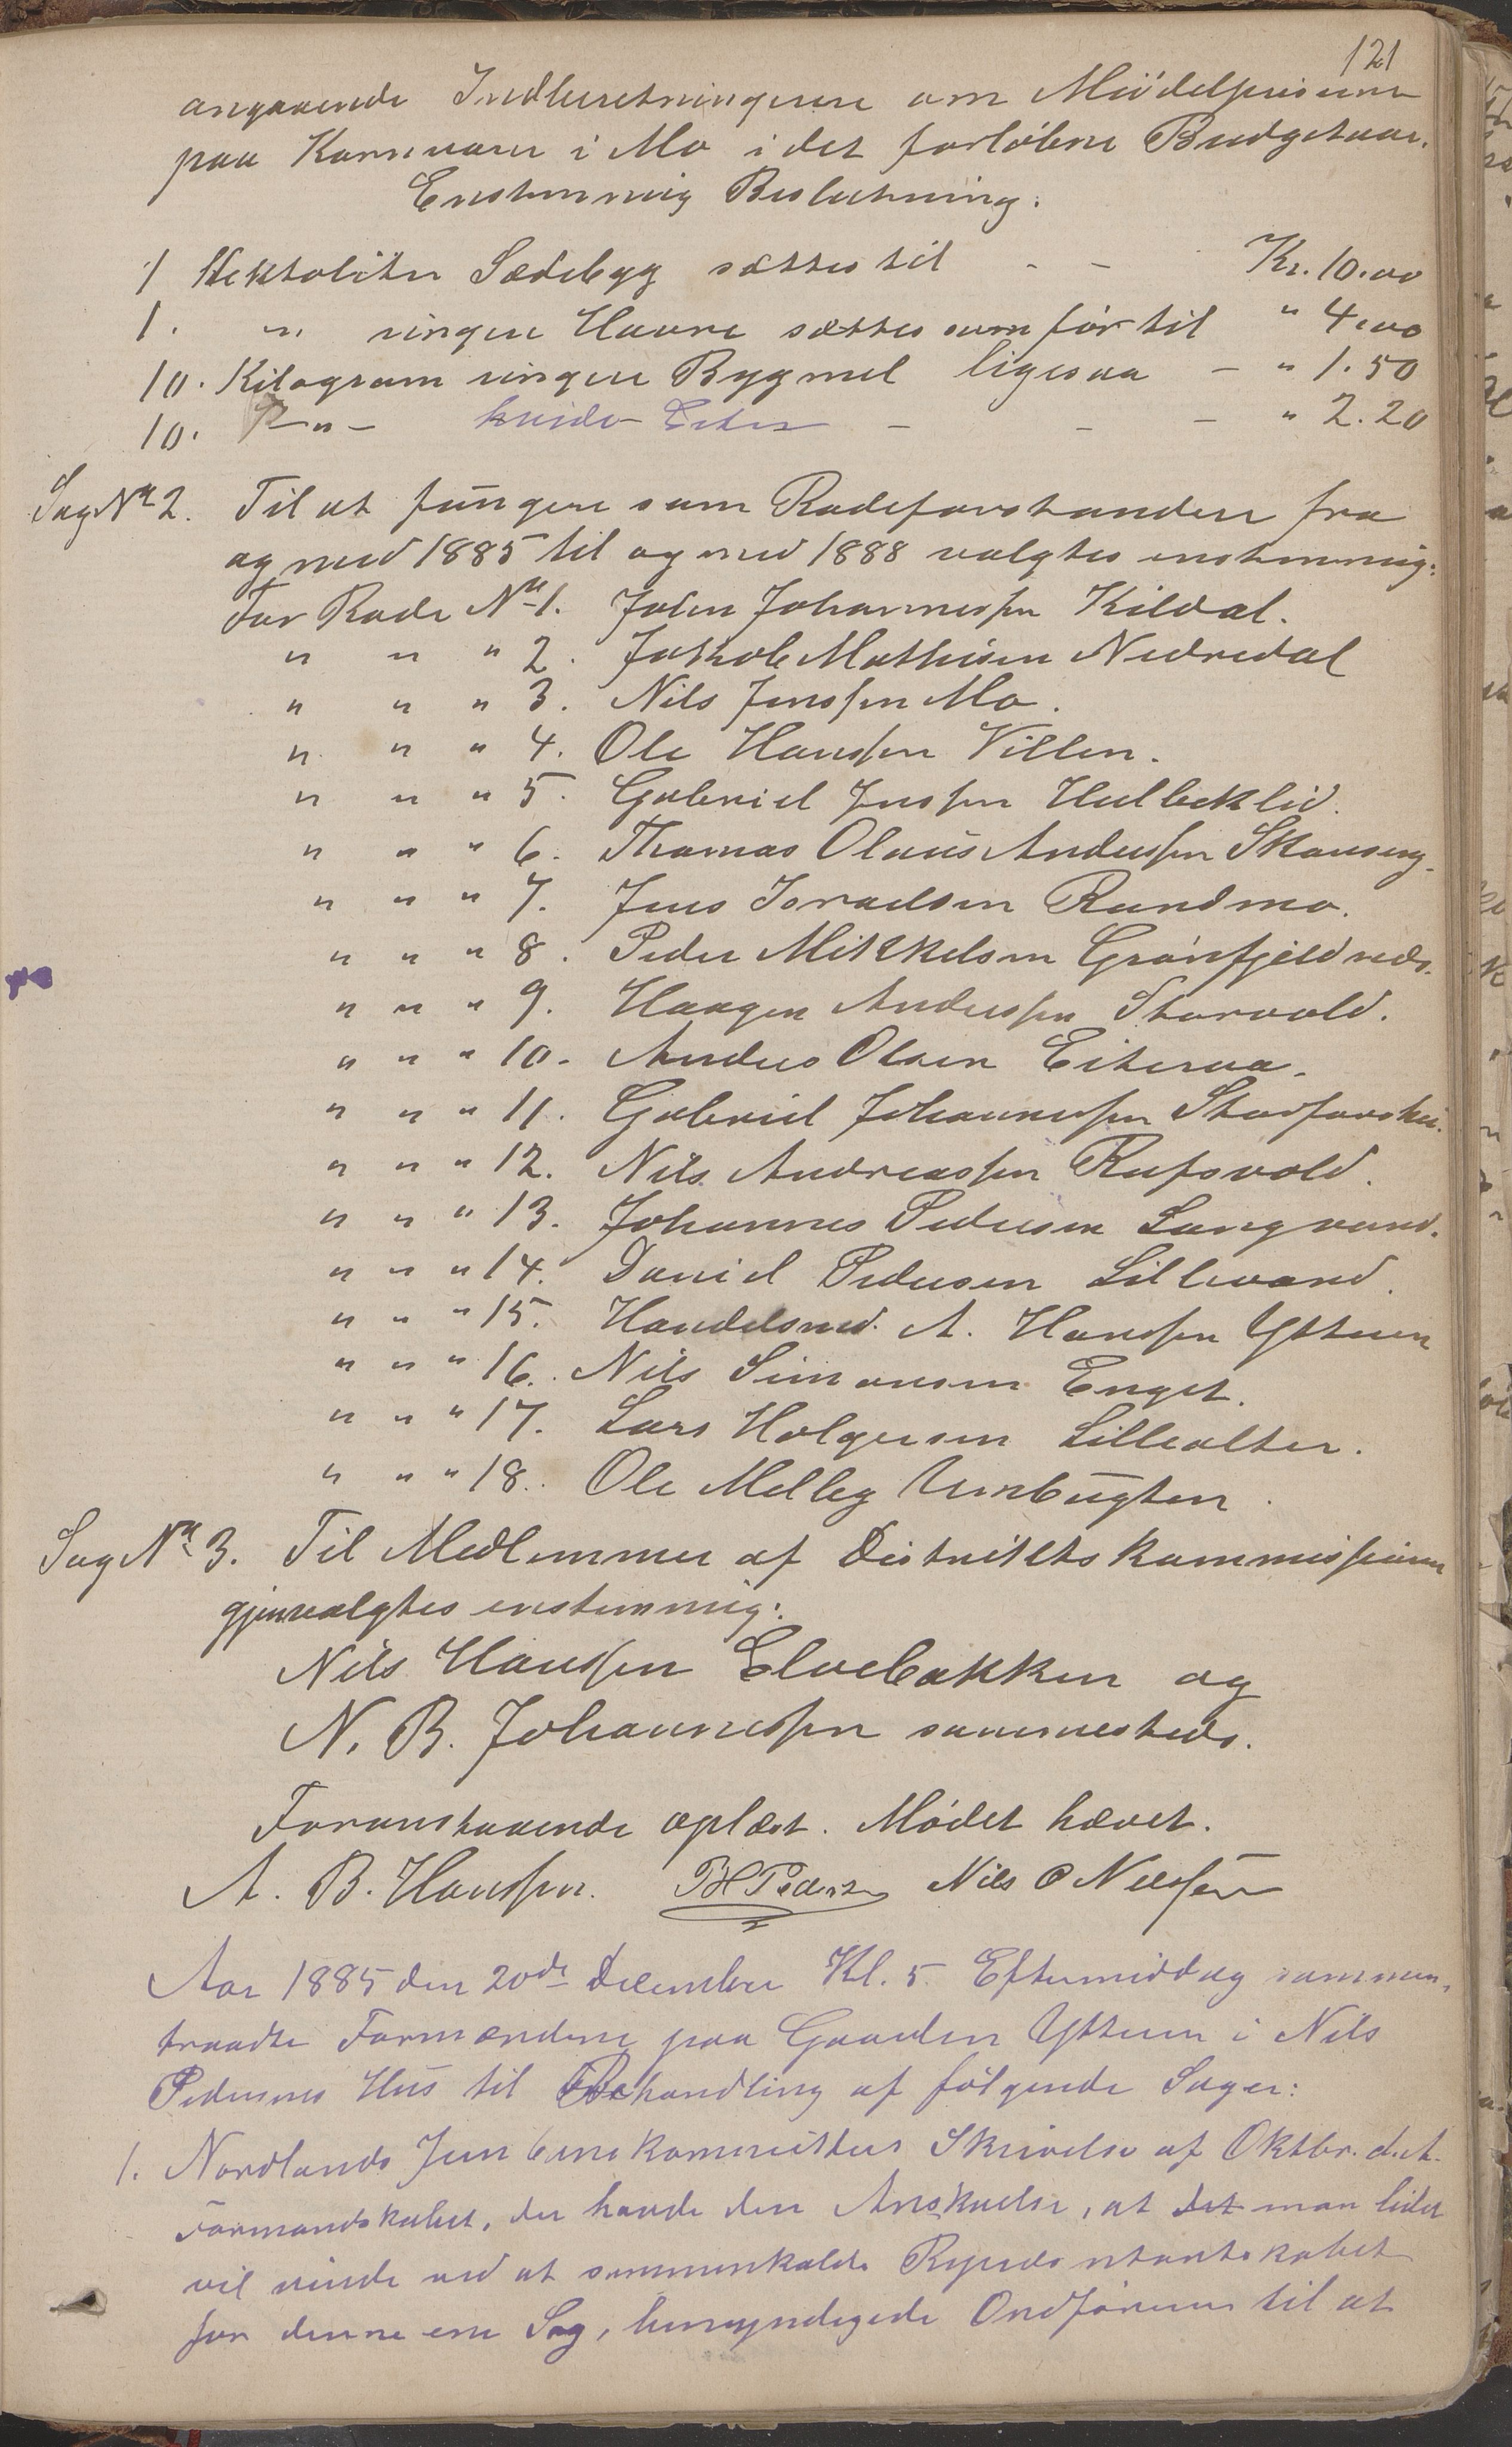 121
angaaende Indberetningerne om Middelpriserne
paa Kornvarer i Mo i det forløbne Budgetaar.
Enstemmig Beslutning:
1 Hektoliter Sædebyg sættes til - - Kr. 10.00
1. " ringere Havre sættes som før til " 4.00
10. Kilogram ringere Bygmel ligesaa - " 1.50
10. - " - - - - " 2.20
Sag No 2. Til at fungere som Rodeforstandere fra
og med 1885 til og med 1888 valgtes enstemmig:
For Rode No 1. John Johannessen Kildal.
" " " 2. Jakkob Mathisen Nedredal
" " " 3. Nils Jenssen Mo.
" " " 4. Ole Hanssen Villen.
" " " 5. Gabriel Jenssen Hulbeklid.
" " " 6. Thomas Olaus Anderssen Skanseng.
" " " 7. Jens Israelsen Rundmo.
" " " 8. Peder Mikkelsen Grønfjeld neds.
" " " 9. Haagen Anderssen Storvold.
" " " 10. Anders Olsen Eiteraa.
" " " 11. Gabriel Johannessen Storforshei.
" " " 12. Nils Andreassen Rufsvold.
" " " 13. Johannes Pedersen Langvand.
" " " 14. Daniel Pedersen Lillevand.
" " " 15. Handelsmd. A. Hanssen Ytteren
" " " 16. Nils Simonsen Enget.
" " " 17. Lars Holgersen Lillealter.
" " " 18. Ole Melby Umbugten.
Sag No 3. Til Medlemmer af Distriktskommissionen
gjenvalgtes enstemmig:
Nils Hanssen Elvebakken og
N. B. Johannessen sammesteds.
Foranstaaende oplæst. Mødet hævet.
A. B. Hanssen. PH Pedersen Nils O Nilssen
Aar 1885 den 20de December Kl. 5 Eftermiddag sammen-
traadte Formændene paa Gaarden Ytteren i Nils
Pedersens Hus til Behandling af følgende Sager:
1. Nordlands Jernbanekommitees Skrivelse af Oktbr. d.A.
Formandskabet, der havde den Anskuelse, at det man lidet
vil vinde ved at sammenkalde Repræsentantskabet
for denne ene Sag, bemyndigede Ordføreren til at